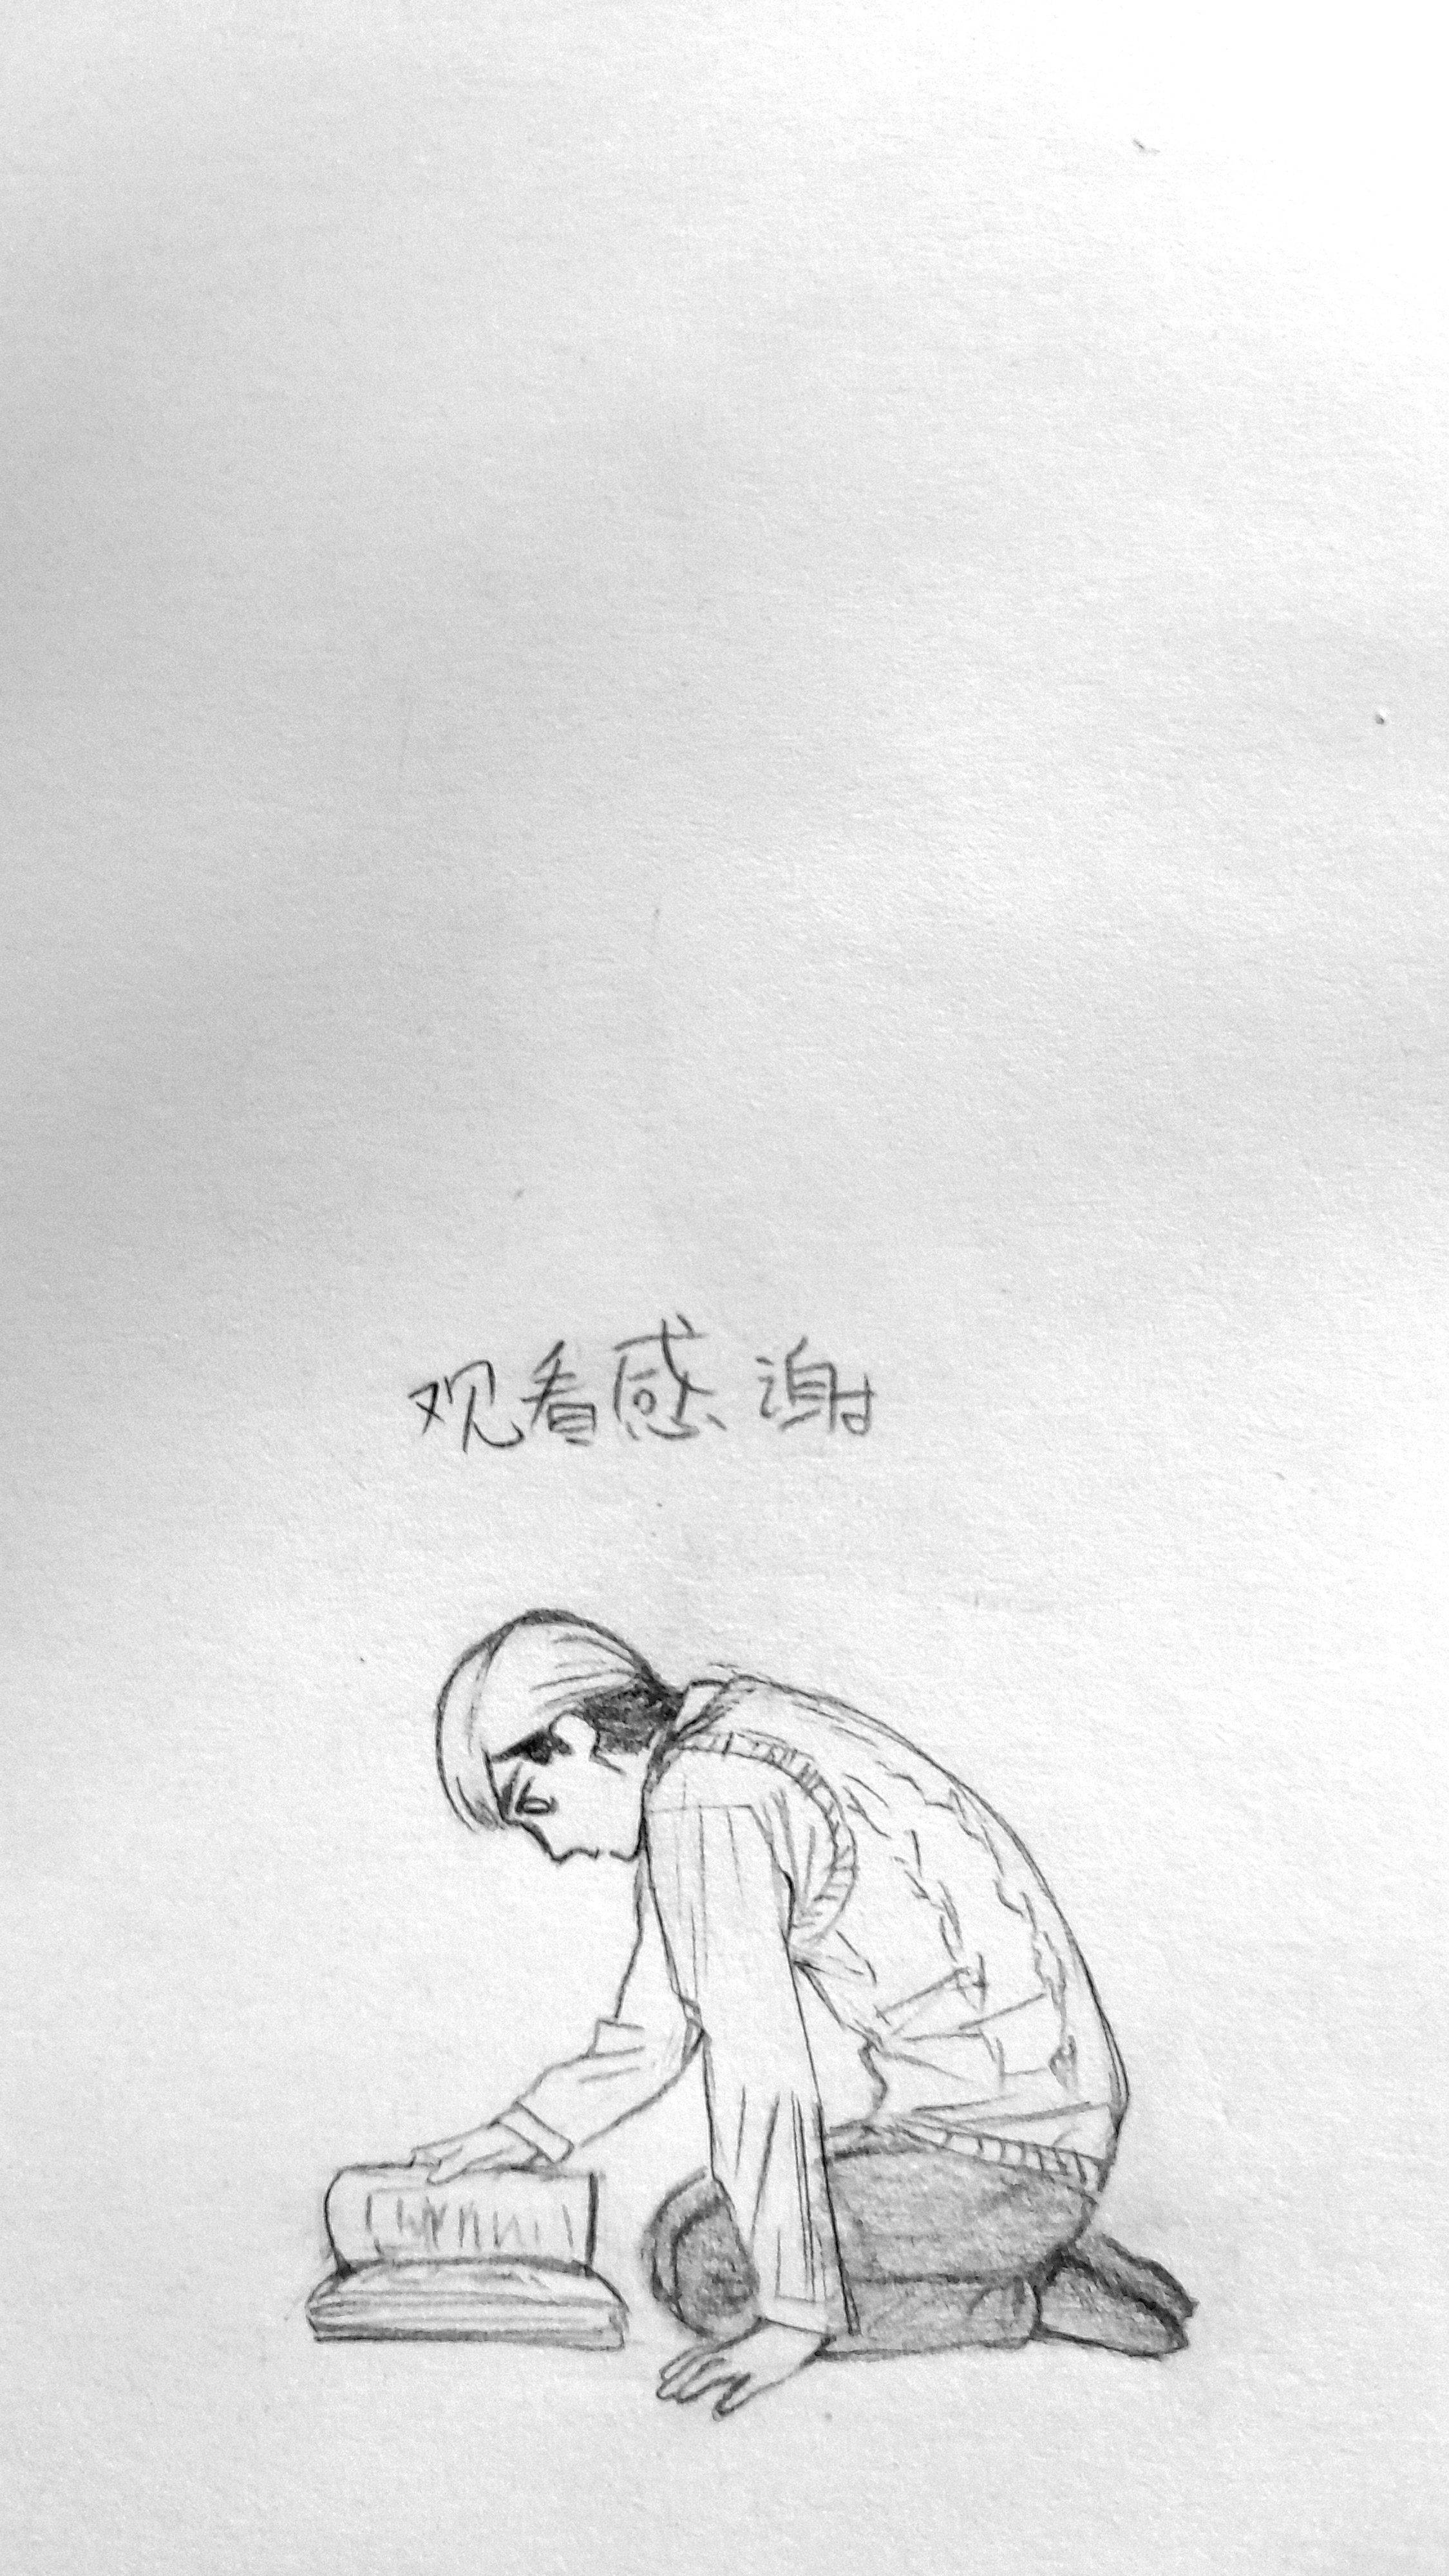 观看感谢